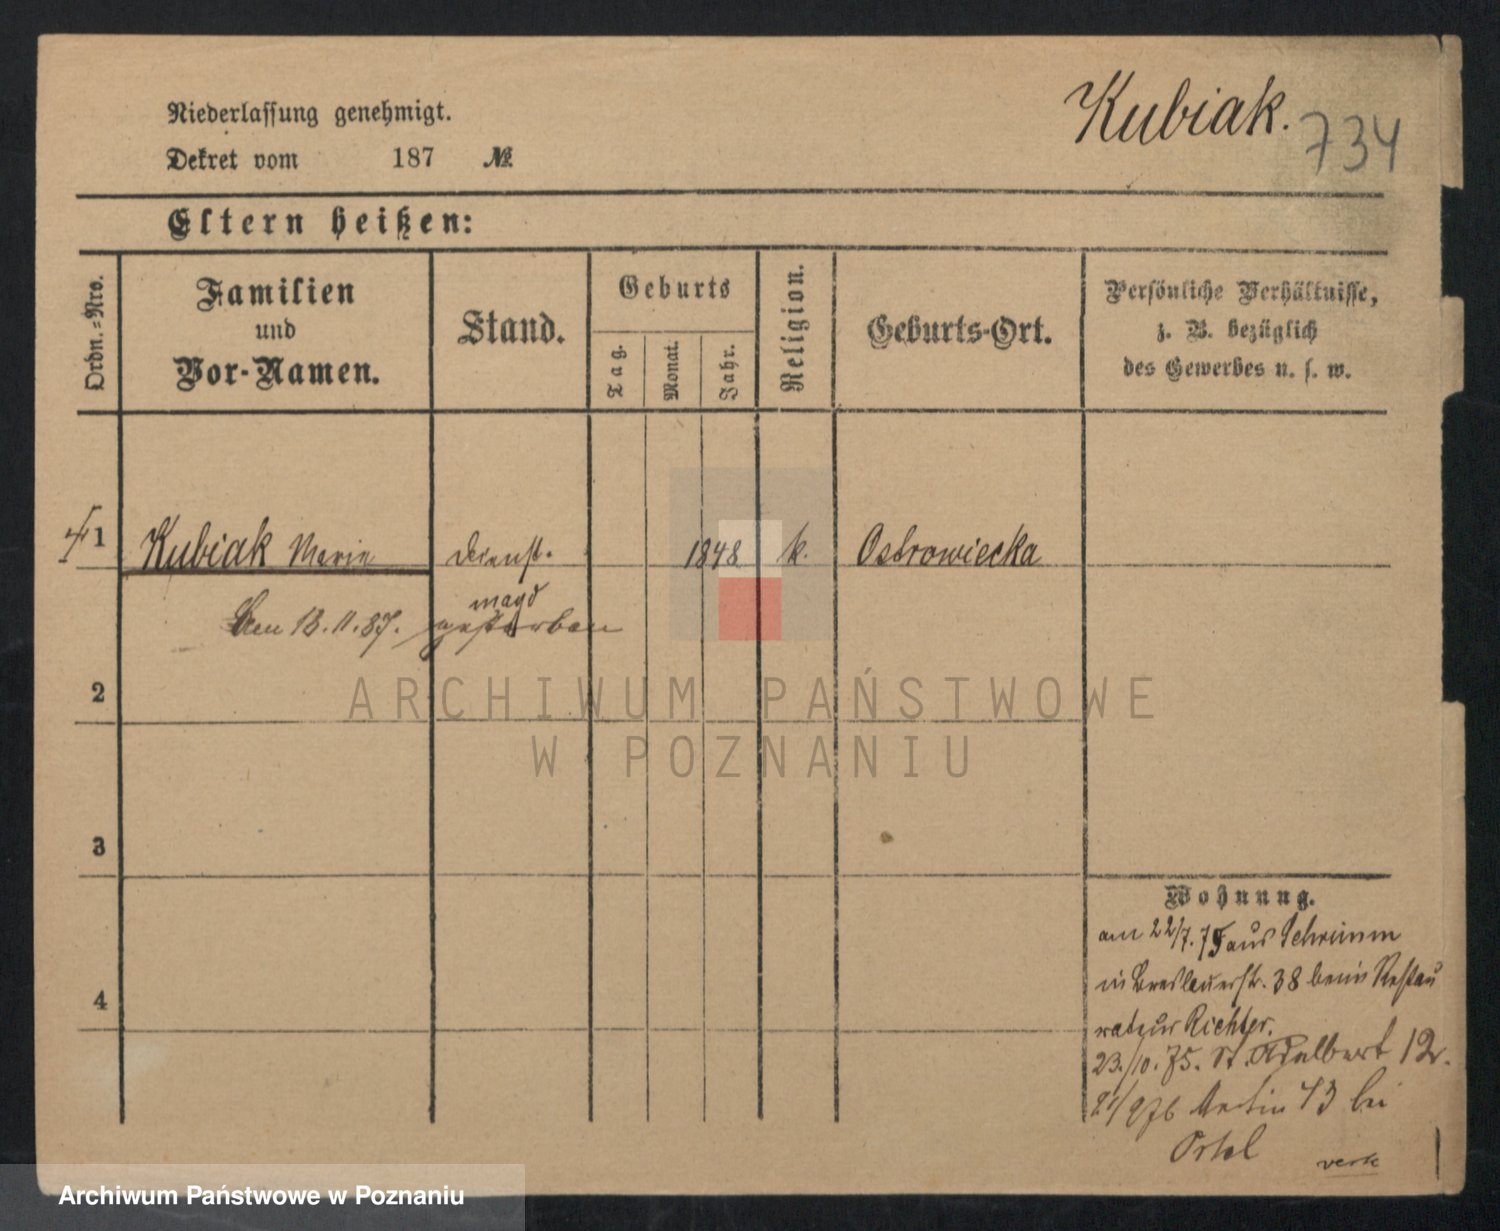 Kubiak. 734
Niederlassung genehmigt.
Dekret vom 187 №
Eltern heißen:
Ordn.-Nro.
Familien
und
Vor-Namen.
Stand.
Geburts
Tag.
Monat.
Jahr.
Religion.
Geburts-Ort.
Persönliche Verhältnisse,
z. B. bezüglich
des Gewerbes u. s. w.
1 Kubiak Marie Dienst- 1848 k. Ostrowiecka
magd
den 13.11.87. gestorben
2
ARCHIWUM PAŃSTWOWE
W POZNANIU
3
4
Wohnung.
am 22/7. 75 aus Schrimm
in Breslauerstr. 38 beim Restau
rateur Richter.
23./10. 75. St. Adalbert 12.
Martin 73 bei
verte
Archiwum Państwowe w Poznaniu